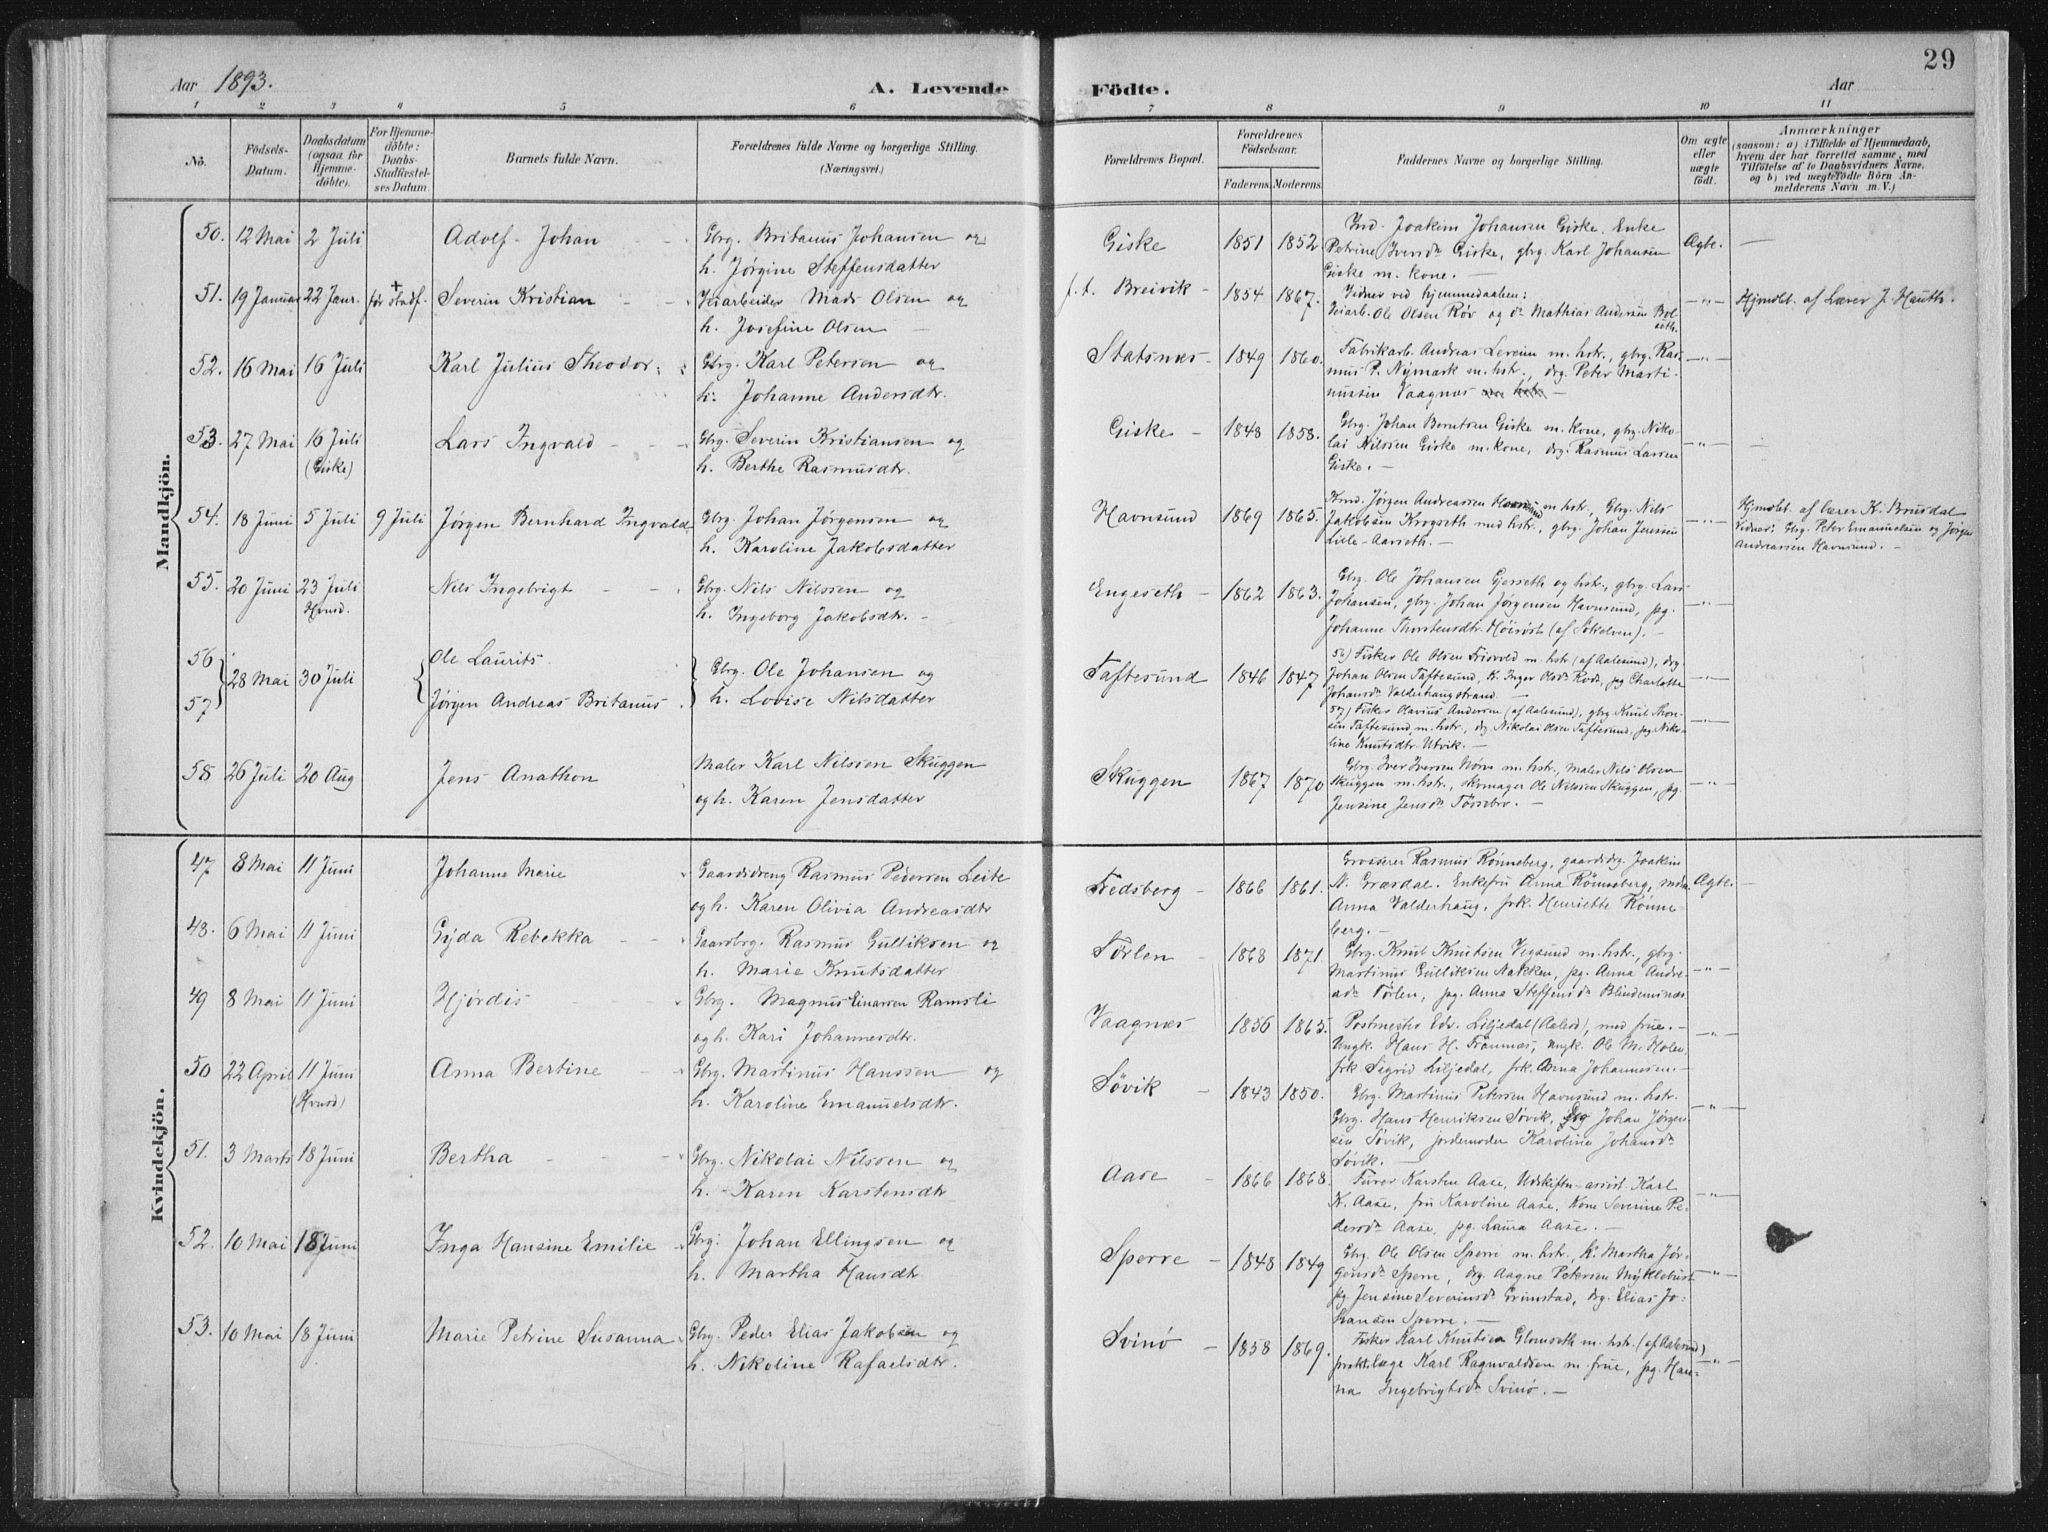 29
Aar 1893.
A. Levende Födte.
Aar
1 2 3 4 5 6 7 8 9 10 11
Nö.
Födsels-Datum.
Daabsdatum (ogsaa for Hjemme-döbte).
For Hjemme-döbte: Daabs-Stadfæstel-ses Datum.
Barnets fulde Navn.
Forældrenes fulde Navne og borgerlige Stilling. (Næringsvei.)
Forældrenes Bopæl.
Forældrenes Födselsaar.
Faderens. Moderens.
Faddernes Navne og borgerlige Stilling.
Om ægte eller uægte födt.
Anmærkninger
(saasom: a) i Tilfælde af Hjemmedaab, hvem der har forrettet samme, med Tilföielse af to Daabsvidners Navne, og b) ved uægtefödte Börn An-melderens Navn m. V.)
Mandkjön.
50. 12 Mai 2 Juli Adolf Johan Gbrg. Britanus Johansen og
h. Jørgine Steffensdatter
Giske 1851 1852 Ind. Joakim Johansen Giske, Enke
Petrine Iversdr. Giske, gbrg. Karl Johansen
Giske m. kone. —
Ægte. —
51. 19 Januar 22 Janr. før + stadf. Severin Kristian Veiarbeider Mads Olsen og
h. Josefine Olsen —
f. t. Breivik 1854 1867. Vidner ved hjemmedaaben:
Veiarb. Ole Olsen Røv og do Mathias Andersen Bol
seth.
—"— Hjmdbt. af Lærer J. Hauth.
52. 16 Mai 16 Juli Karl Julius Theodor Gbrg. Karl Petersen og
h. Johanne Andersdtr.
Statsnæs 1849 1860. Fabrikarb. Andreas Levein m. hstr., gbrg. Ras-
mus P. Nymark m. hstr., drg. Peter Marti-
nussen Vaagnæs
—"—
53. 27 Mai 16 Juli (Giske) Lars Ingvald Gbrg. Severin Kristiansen og
h. Berthe Rasmusdtr.
Giske 1848 1858. Gbrg. Johan Berntsen Giske m. kone, gbrg. Niko-
lai Nilssen Giske m. kone, drg. Rasmus Larsen
Giske. —
—"—
54. 18 Juni 5 Juli 9 Juli Jørgen Bernhard Ingvald Gbrg. Johan Jørgensen og
h. Karoline Jakobsdatter
Havnsund 1869 1865. Jørgen Andreassen Havnsund m hstr, Gbrg. Nils
Jakobsen Krogseth med hstr., gbrg. Johan Jenssen
Lille-Aarseth. —
—"— Hjmdbt. af Lærer K. Brusdal
Vidner: Gbrg. Peter Emanuelsen og Jørgen
Andreassen Havnsund. —
55. 20 Juni 23 Juli Hvnsd. Nils Ingebrigt Gbrg. Nils Nilssen og
h. Ingeborg Jakobsdtr. —
Engeseth 1862 1863. Gbrg. Ole Johansen Gjerseth og hstr., gbrg. Lars
Johansen, gbrg. Johan Jørgensen Havnsund, pg.
Johanne Thorstensdtr. Höisöst (af Sökelven). —
—"—
56 57 28 Mai 30 Juli Ole Laurits
Jørgen Andreas Britanus Gbrg. Ole Johansen og
h. Lovise Nilsdatter
Taftesund 1846 1847 56) Fisker Ole Olsen m. hstr (af Aalesund), drg.
Johan Olsen Taftesund, K. Inger Olsdr. Rod, pg Charlotte
Johansdr. Valderhaugstrand. —
57) Fisker Olavius Andersen (af Aalesund), gbrg. Knut Thor-
sen Taftesund, m. hstr, drg Nikolai Olsen Taftesund, pg. Niko-
line Knutsdtr. Utvik. —
—"—
—"—
58 26 Juli 20 Aug Jens Anathon Maler Karl Nilssen Skuggen
og h. Karen Jensdatter
Skuggen 1867 1870 Gbrg. Iver Iversen Nörve m. hstr., maler Nils Olsen
Skuggen m. hstr., skomager Ole Nilssen Skuggen, pg.
Jensine Jensdr. Tössebro. —
—"—
Kvindekjön.
47 8 Mai 11 Juni Johanne Marie Gaardsdreng Rasmus Pedersen Leite
og h. Karen Olivia Andreasdtr
Fredsberg 1866 1861. Grosserer Rasmus Rönneberg, gaardsdrg. Joakim
N. Græsdal. Enkefru Anna Rönneberg, mdm
Anna Valderhaug, frk. Henriette Rönne-
berg. —
Ægte. —
48. 6 Mai 11 Juni Gyda Rebekka Gaardbrg. Rasmus Gulliksen og
h. Marie Knutsdatter
Tørlen 1868 1871. Gbrg. Knut Knutsen Vegsund m. hstr., gbrg.
Martinus Gulliksen Nakken, pg. Anna Andre-
asdr. Tørlen, pg. Anna Steffensdr. Blindemsnæs
—"—
49 8 Mai 11 Juni Hjørdis Gbrg. Magnus Einarsen Ramsli
og h. Kari Johannesdtr.
Vaagnæs 1856 1865. Postmester Edv. Liljedal (Aalesd), med frue. —
Ungk. Hans H. Frönnæs, ungk. Ole M. Holen,
frk Sigrid Liljedal, frk. Anna Johannesen. —
—"—
50 22 April 11 Juni (Hvnsd) Anna Bertine Gbrg. Martinus Hanssen og
h. Karoline Emanuelsdtr.
Søvik 1843 1850. Gbrg. Martinus Petersen Havnsund m. hstr.
Gbrg. Hans Henriksen Søvik, Johan Jørgen-
sen Søvik, jordemoder Karoline Johansdr.
Søvik. —
—"—
51. 3 Marts 18 Juni Bertha Gbrg. Nikolai Nilssen og
h. Karen Karstensdtr
Aase 1866 1868. Furer Karsten Aase, Udskiftn.-assist. Karl
K. Aase, fru Karoline Aase, Kone Severine Pe-
dersdr. Aase, pg. Laura Aase. —
—"—
52. 10 Mai 18 Juni Inga Hansine Emilie Gbrg. Johan Ellingsen og
h. Martha Hansdtr.
Sperre 1848 1849 Gbrg. Ole Olsen Sperre m. hstr, K. Martha Jør-
gensdr. Sperre, drg. Aagne Petersen Myklebust
pg. Jensine Severinsdr. Grimstad, drg. Elias Jo-
hansen Sperre. —
—"—
53. 10 Mai 18 Juni Marie Petrine Susanna Gbrg. Peder Elias Jakobsen og
h. Nikoline Rafaelsdtr.
Svinø 1858 1869. Fisker Karl Knutsen Glomseth m. hstr. (af Aalesund)
prakt. læge Karl Ragnvaldsen m. frue, pg. Han-
na Ingebrigtsdr. Svinø. —
—"—